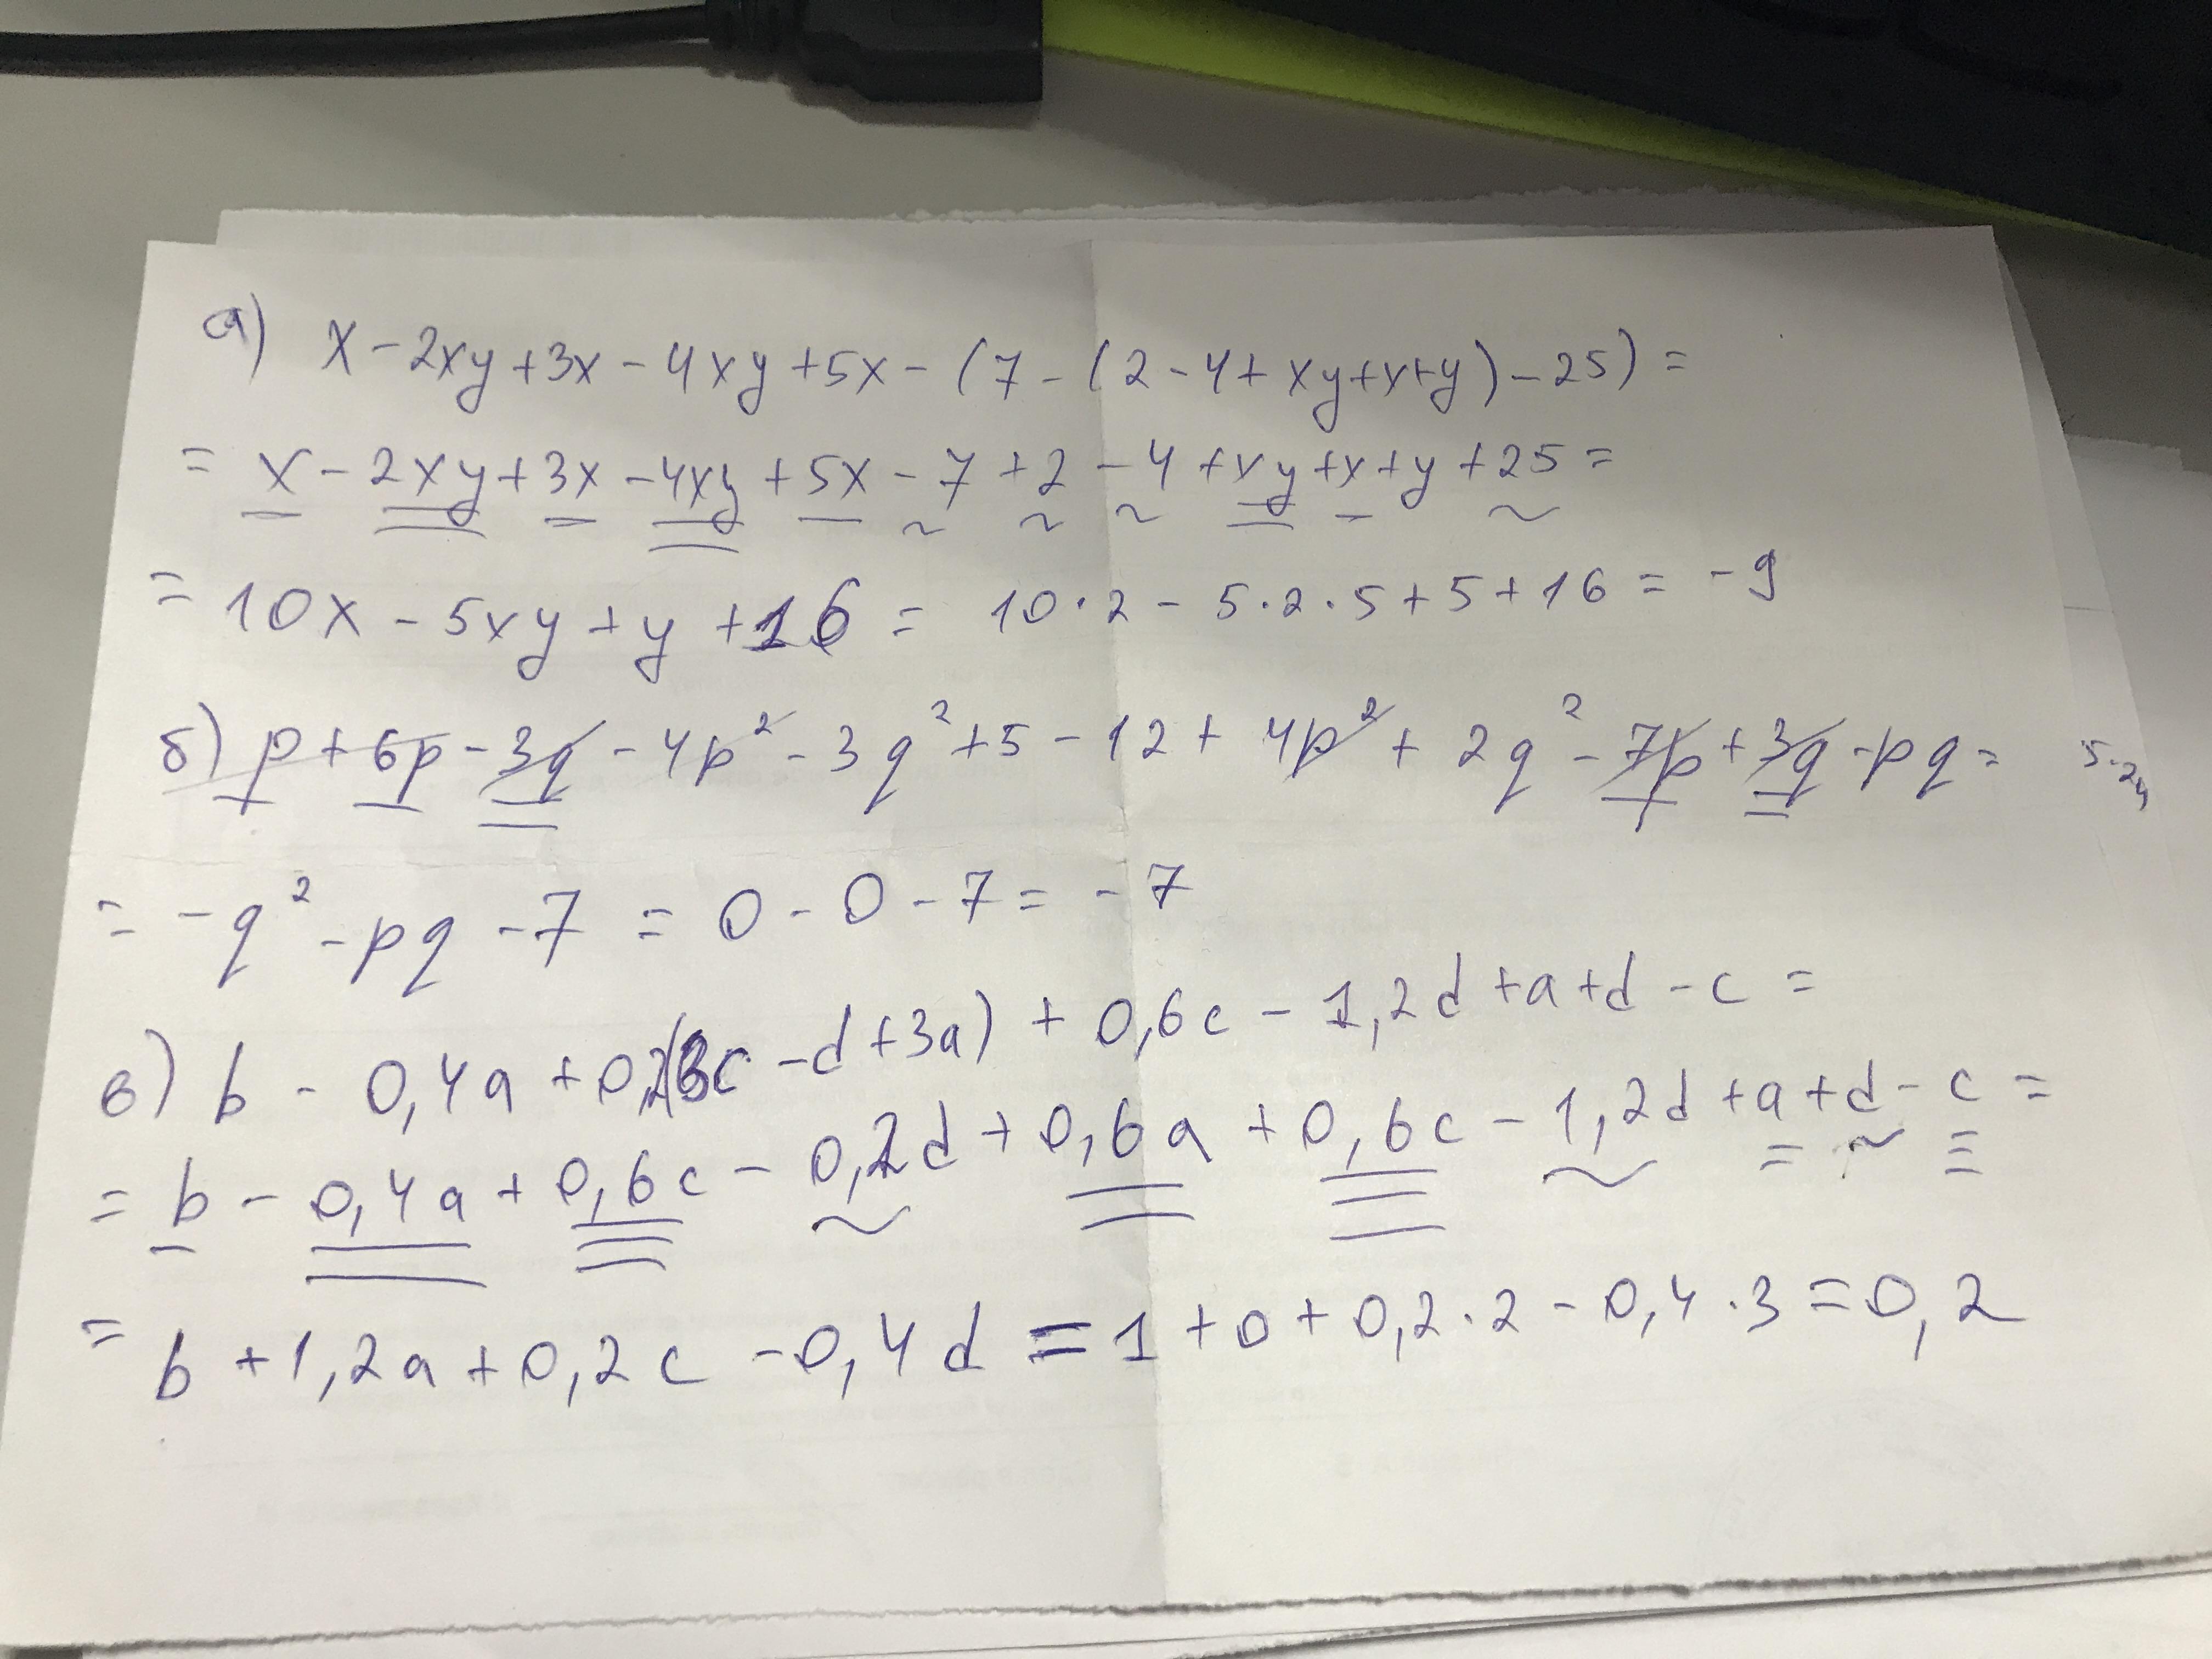 а) x - 2xy + 3x - 4xy + 5x - (7 - (2 - 4 + xy + x + y) - 25) =
= x - 2xy + 3x - 4xy + 5x - 7 + 2 - 4 + xy + x + y + 25 =
= 10x - 5xy + y + 16 = 10 · 2 - 5 · 2 · 5 + 5 + 16 = -9
б) p + 6p - 3q - 4p² - 3q² + 5 - 12 + 4p² + 2q² - 7p + 3q - pq =
= -q² - pq - 7 = 0 - 0 - 7 = -7
в) b - 0,4a + 0,2(3c - d + 3a) + 0,6c - 1,2d + a + d - c =
= b - 0,4a + 0,6c - 0,2d + 0,6a + 0,6c - 1,2d + a + d - c =
= b + 1,2a + 0,2c - 0,4d = 1 + 0 + 0,2 · 2 - 0,4 · 3 = 0,2